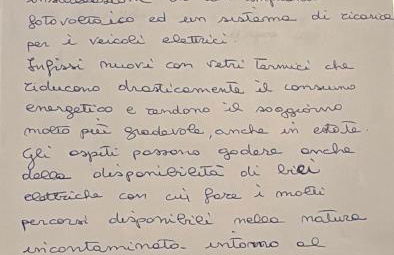 fotovoltaico ed un sistema di ricarica
per i veicoli elettrici.
Infissi nuovi con vetri termici che
riducono drasticamente il consumo
energetico e rendono il soggiorno
molto più gradevole, anche in estate.
Gli ospiti possono godere anche
della disponibilità di bici
elettriche con cui fare i molti
percorsi disponibili nella natura
incontaminata intorno al